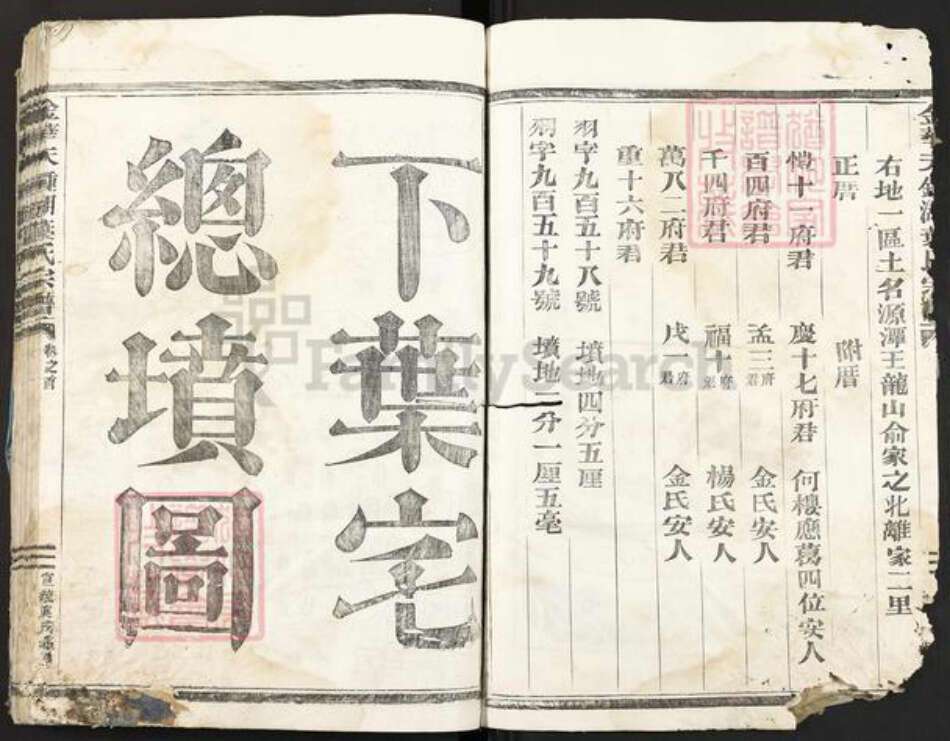 右地一區土名源潭王龍山俞家之北離家二里
正厝 附厝
愷十一府君 慶十七府君 何樓應葛四位安人
百四府君 孟三府君 金氏安人
千四府君 福十府君 楊氏安人
萬八二府君 戌一府君 金氏安人
重十六府君
羽字九百五十八號 墳地四分五厘
羽字九百五十九號 墳地二分一厘五毫
下葉宅
總墳圖
卷之首
FamilySearch